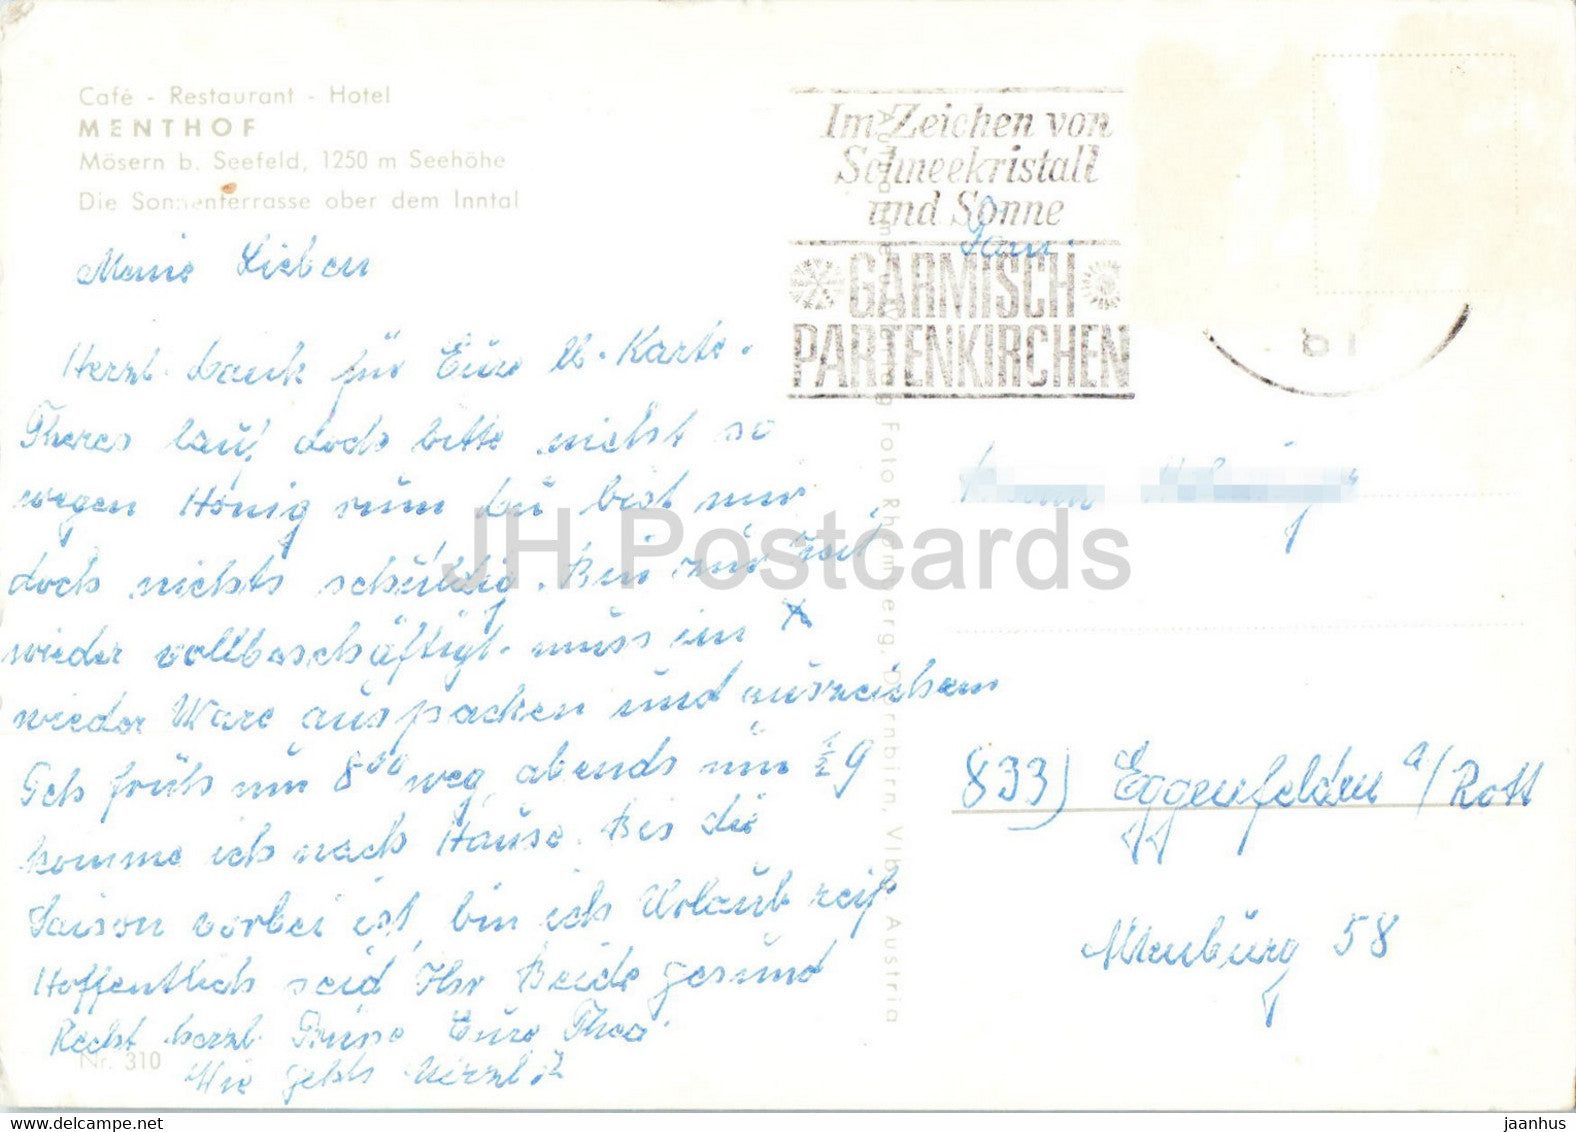 Café - Restaurant - Hotel
MENTHOF
Mösern b. Seefeld, 1250 m Seehöhe
Die Sonnenterrasse ober dem Inntal
Meine Lieben
Herzl. Dank für Eure U.-Karte.
Theres lauf doch bitte nicht so
wegen Honig rum Du bist mir
doch nichts schuldig. Bin zur Zeit
wieder vollbeschäftigt. muss im
wieder Ware auspacken und auszeichnen
Ich früh um 8⁰⁰ weg, abends um ½ 9
komme ich nach Hause. Bis die
Saison vorbei ist, bin ich Urlaub reif
Hoffentlich seid Ihr Beide gesund
Recht herzl. Grüsse Eure Thea.
Wie gehts
Nr. 310
Im Zeichen von
Schneekristall
und Sonne
GARMISCH
PARTENKIRCHEN
Fam.
Foto Rhomberg, Dornbirn, Vlbg. Austria
833) Eggenfelden a/Rott
Altenburg 58
JH Postcards
jaanhus
www.delcampe.net